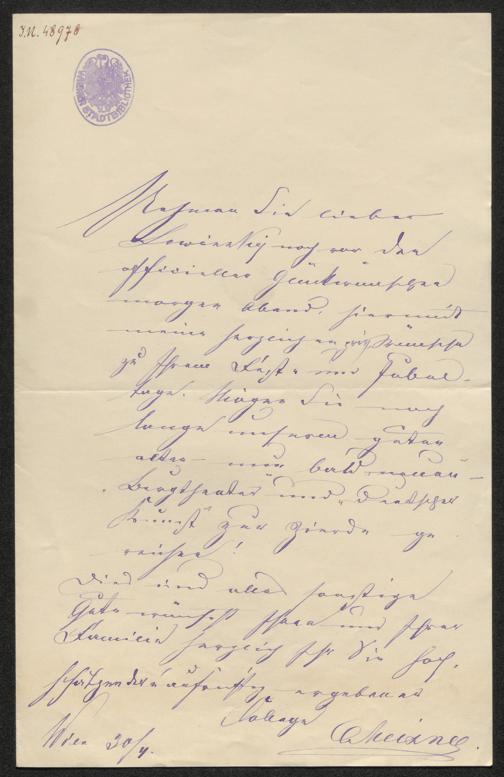 I.N. 48978
WIENER STADTBIBLIOTHEK
Nehmen Sie lieber
Lewinsky noch vor den
officiellen Glückwünschen
morgen Abend, hiermit
meine herzlichen Wünsche
zu Ihrem Fest- und Jubel-
tage. Mögen Sie noch
lange unserem guten
alten – nun bald neuen –
„Burgtheater“ und „Deutscher
Kunst“ zur Zierde ge
reichen!
Dies und alles sonstige
Gute wünscht Ihnen und Ihrer
Familie herzlich Ihr Sie hoch-
schätzender u aufrichtig ergebener
College
CMeixner.
Wien 30/4.